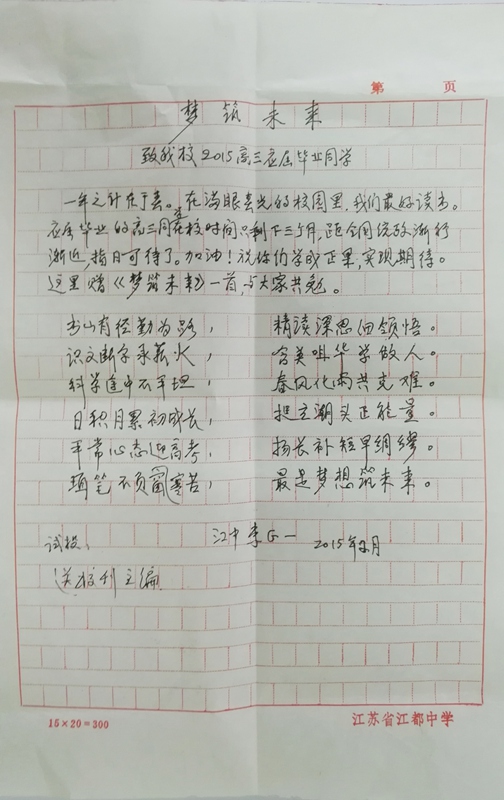 第 页
梦筑未来
致我校2015高三应届毕业同学
一年之计在于春。在满眼春光的校园里，我们最好读书。
应届毕业的高三同学在校时间只剩下三个月，距全国统考渐行
渐近，指日可待了。加油！祝你们学成正果，实现期待。
这里赠《梦筑未来》一首，与大家共勉。
书山有径勤为路， 精读深思回领悟。
识文断字承薪火， 含英咀华学做人。
科学途中不平坦， 春风化雨共克难。
日积月累初成长， 挺立潮头正能量。
平常心态迎高考， 扬长补短早绸缪。
走笔不负寒苦， 最是梦想筑未来。
江中李 一 2015年2月
试投：
送校刊主编
15×20=300
江苏省江都中学